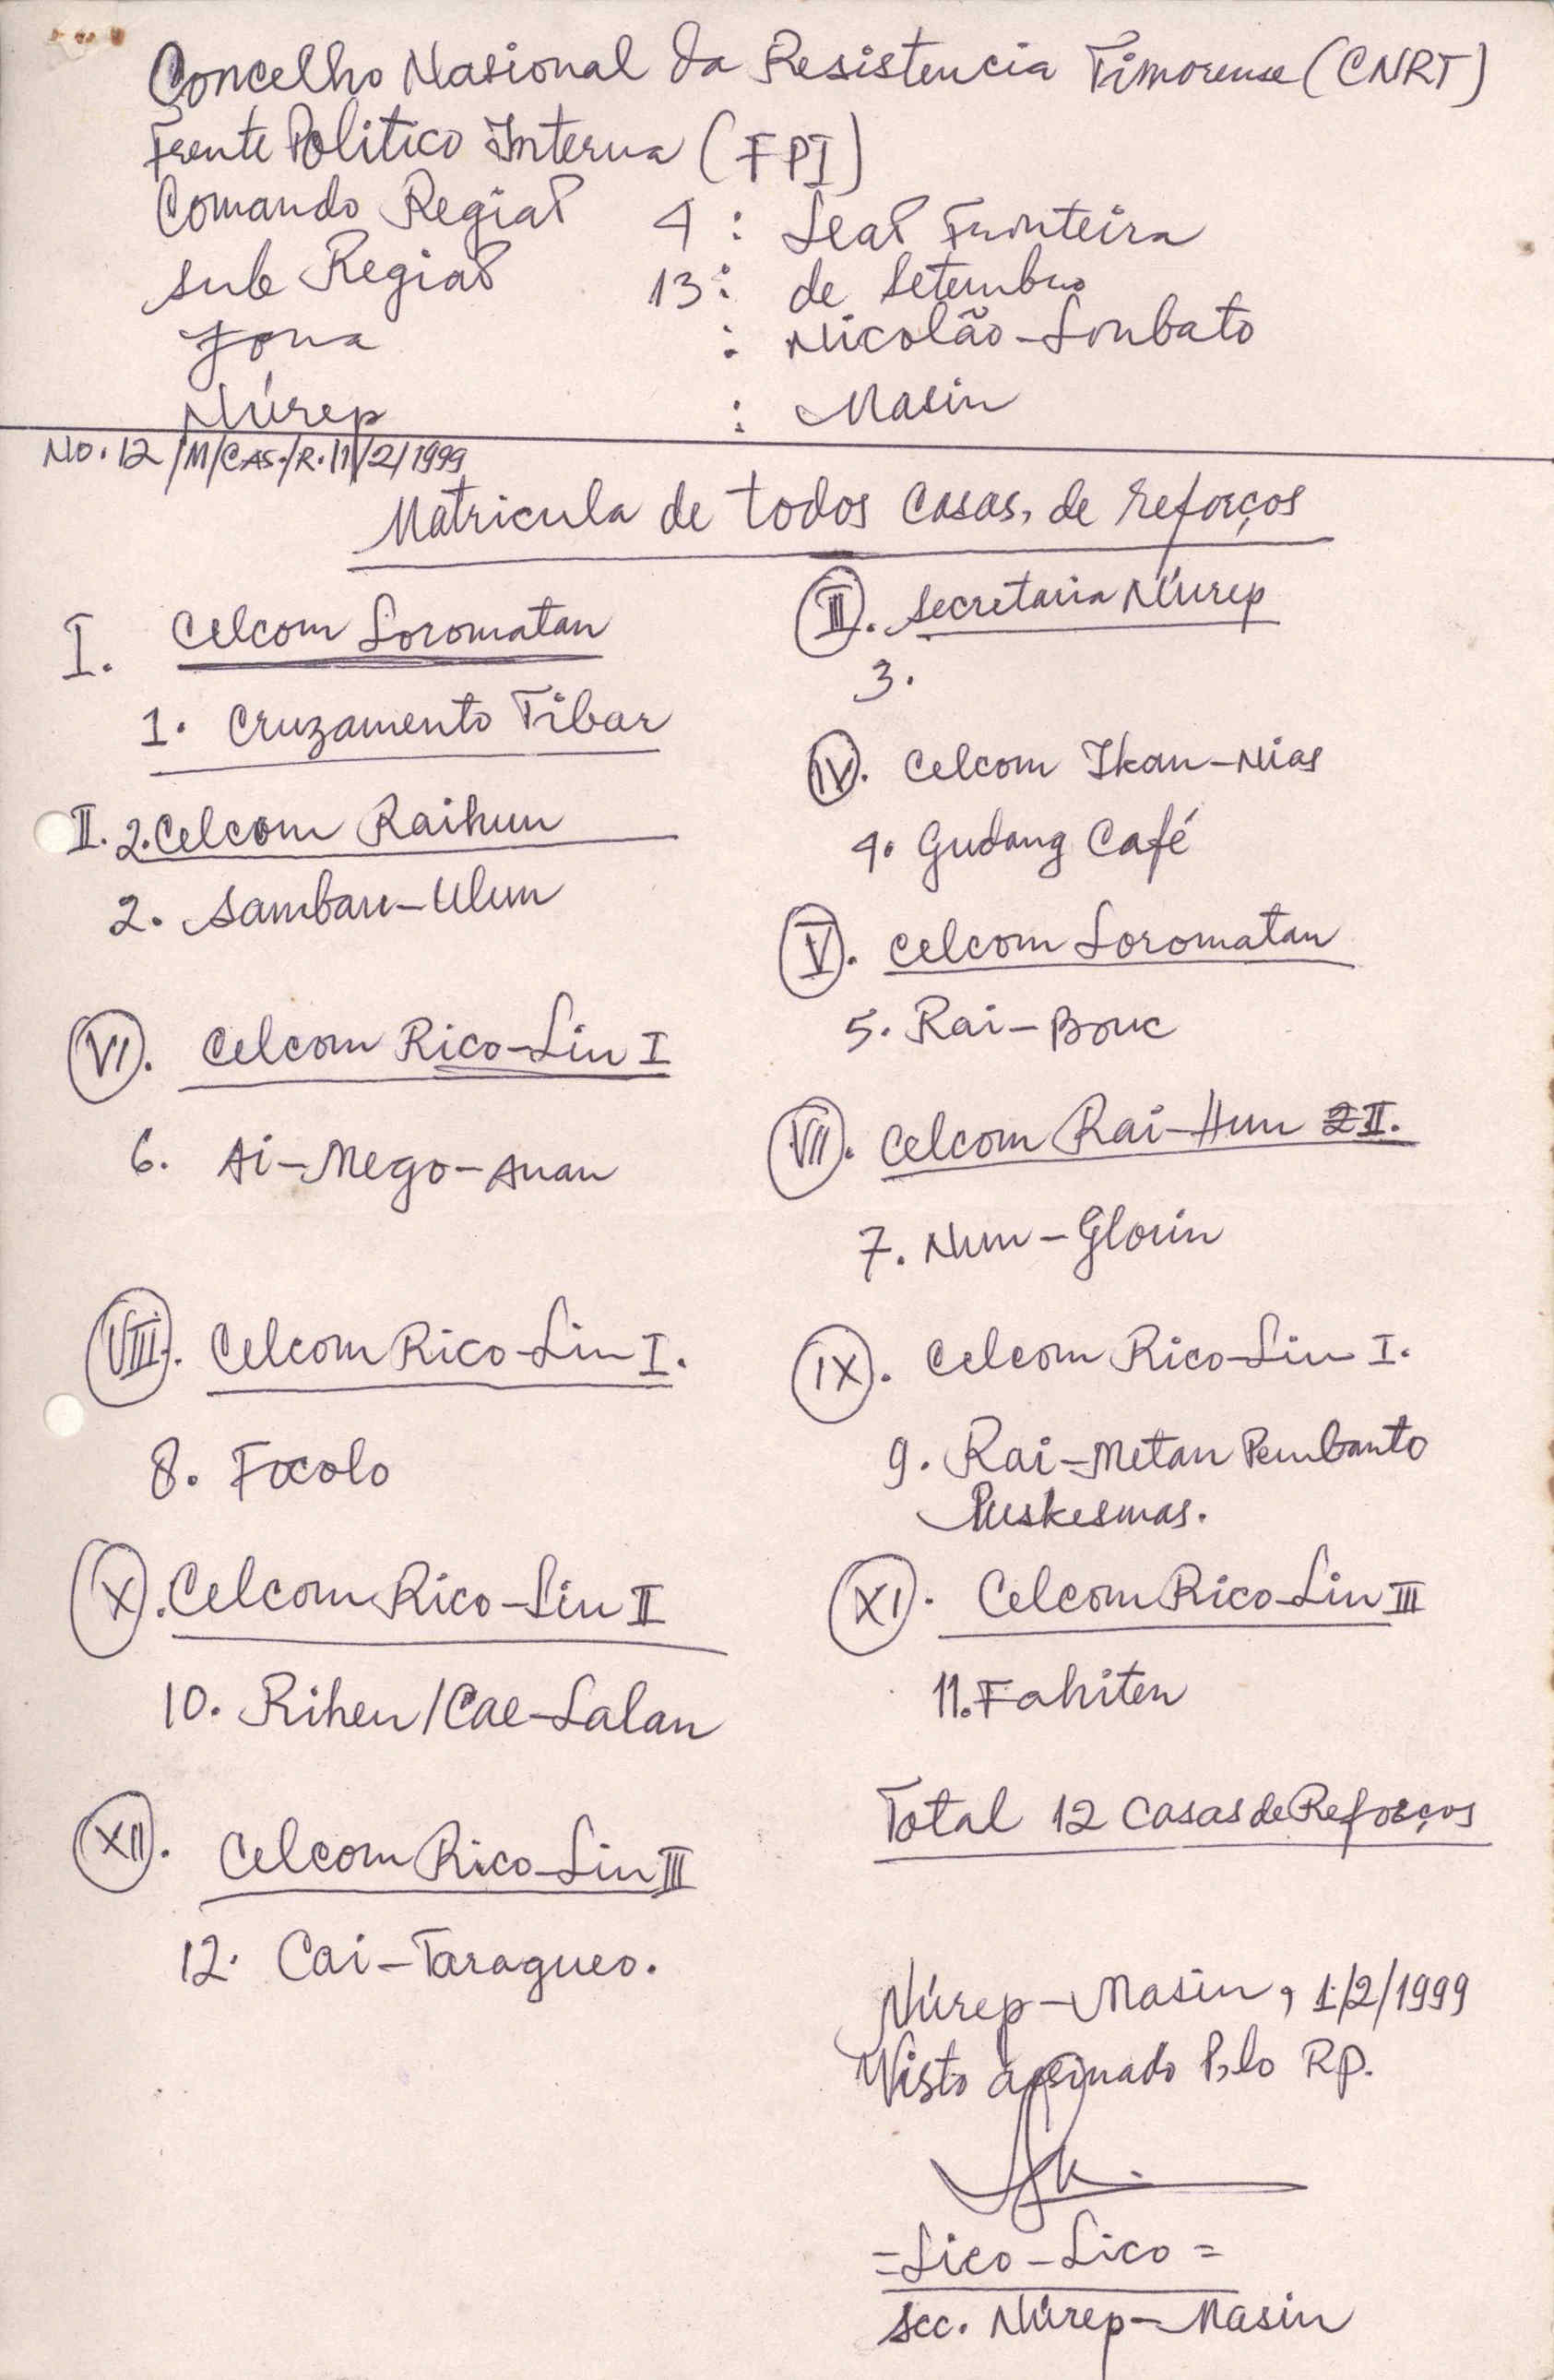 Concelho Nasional da Resistencia Timorense (CNRT)
Frente Politico Interna (FPI)
Comando Regiaõ 4 : Leaõ Fronteira
sub Regiaõ 13 : de Setembro
Zona : Nicolão-Lonbato
Núrep : Masin
NO. 12/M/CAS./R.11/2/1999
Matricula de todos Casas, de reforços
I. Celcom Loromatan
1. Cruzamento Tibar
II. 2. Celcom Raihun
2. Sambau-Ulun
III. Secretaria Núrep
3.
IV. Celcom Ikan-Nias
4. Gudang Café
V. Celcom Loromatan
5. Rai-Bouc
VI. Celcom Rico-Lin I
6. Ai-Mego-Anan
VII. Celcom Rai-Hun 2 II.
7. Nun-Glorin
VIII. Celcom Rico-Lin I.
8. Focolo
IX. Celcom Rico-Lin I.
9. Rai-Metan Pembanto
Puskesmas.
X. Celcom Rico-Lin II
10. Riheu/Cae-Lalan
XI. Celcom Rico-Lin III
11. Fahiten
XII. Celcom Rico-Lin III
12. Cai-Taragueo.
Total 12 Casas de Reforços
Núrep-Masin, 1/2/1999
Visto assinado Pelo RP.
=Lico-Lico=
Sec. Núrep-Masin